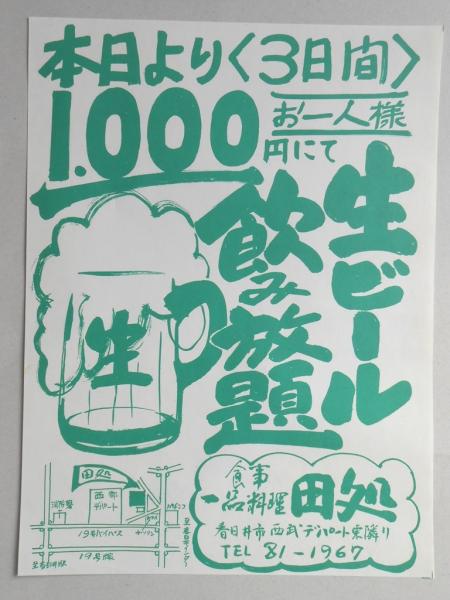 本日より〈3日間〉
お一人様
1.000円にて
生ビール
飲み放題
生
食事
一品料理
田処
春日井市西武デパート東隣り
TEL 81-1967
田処
西部
デパート
消防署
19号バイパス
19号線
ガソリン